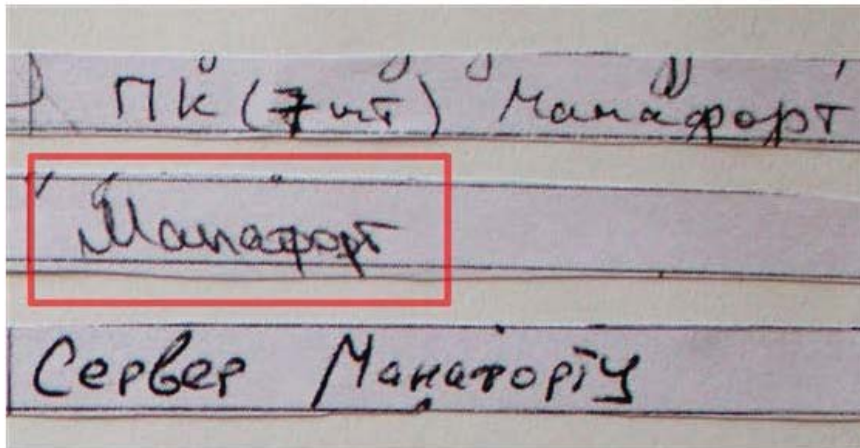 ПК (7 шт) Манафорт
Манафорт
Сервер Манафорту